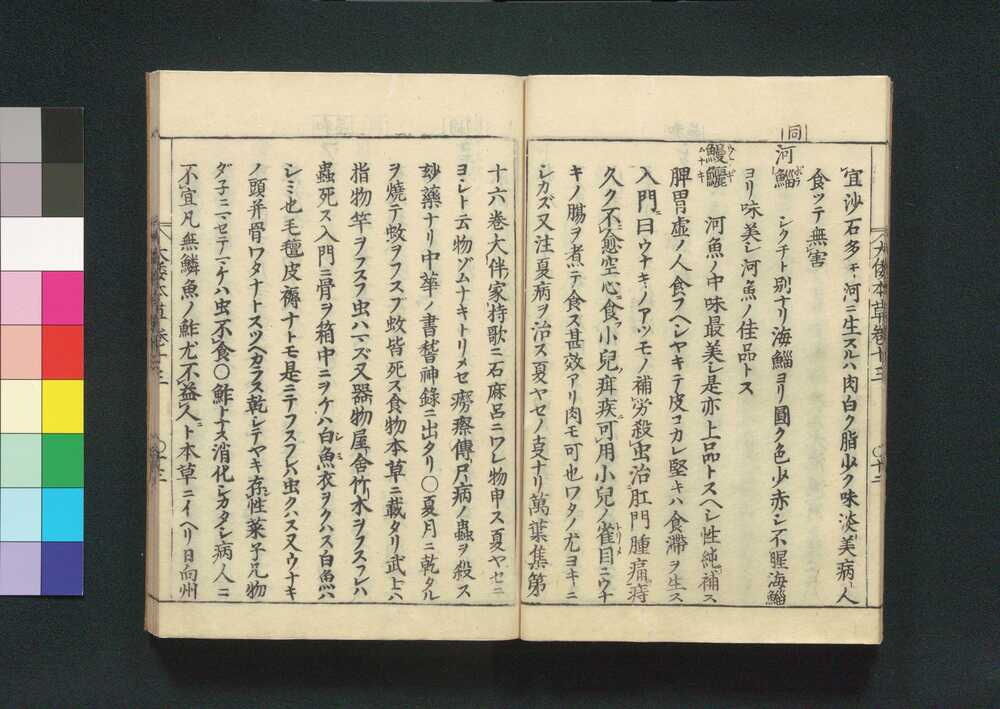 大倭本草卷十三
〇十二
宜沙石多キ河ニ生スルハ肉白ク脂少ク味淡美病人
食ツテ無害
同
河鯔 シクチト別ナリ海鯔ヨリ圓ク色少赤シ不腥海鯔
ヨリ味美シ河魚ノ佳品トス
鰻鱺 河魚ノ中味最美シ是亦上品トスヘシ性純補ス
脾胃虚ノ人食フヘシヤキテ皮コカレ堅キハ食滯ヲ生ス
入門曰ウナキノアツモノ補労殺虫治肛門腫痛痔
久不愈空心食フ小兒疳疾可用小兒ノ雀目ニウナ
キノ腸ヲ煮テ食ス甚效アリ肉モ可也ワタノ尤ヨキニ
シカズ又注夏病ヲ治ス夏ヤセノ叓ナリ萬葉集第
十六卷大伴家持歌ニ石麻呂ニワレ物申ス夏ヤセニ
ヨシト云物ゾムナキトリメセ癆瘵傳尸病ノ蟲ヲ殺ス
妙藥ナリ中華ノ書稽神錄ニ出タリ〇夏月ニ乾タル
ヲ燒テ蚊ヲフスブ蚊皆死ス食物本草ニ載タリ武士ハ
指物竿ヲフスフ虫ハマズ又器物屋舍竹木ヲフスフレハ
蟲死ス入門ニ骨ヲ箱中ニヲケハ白魚衣ヲクハス白魚ハ
シミ也毛氊皮褥ナトモ是ニテフスフレハ虫クハス又ウナキ
ノ頭并骨ワタナトスツヘカラス乾シテヤキ存性菓子凡物
ダ子ニマセテマケハ虫不食〇鮓トナス消化シカタシ病人ニ
不宜凡無鱗魚ノ鮓尤不益人ト本草ニイヘリ日向州
大倭本草卷十三
〇十三